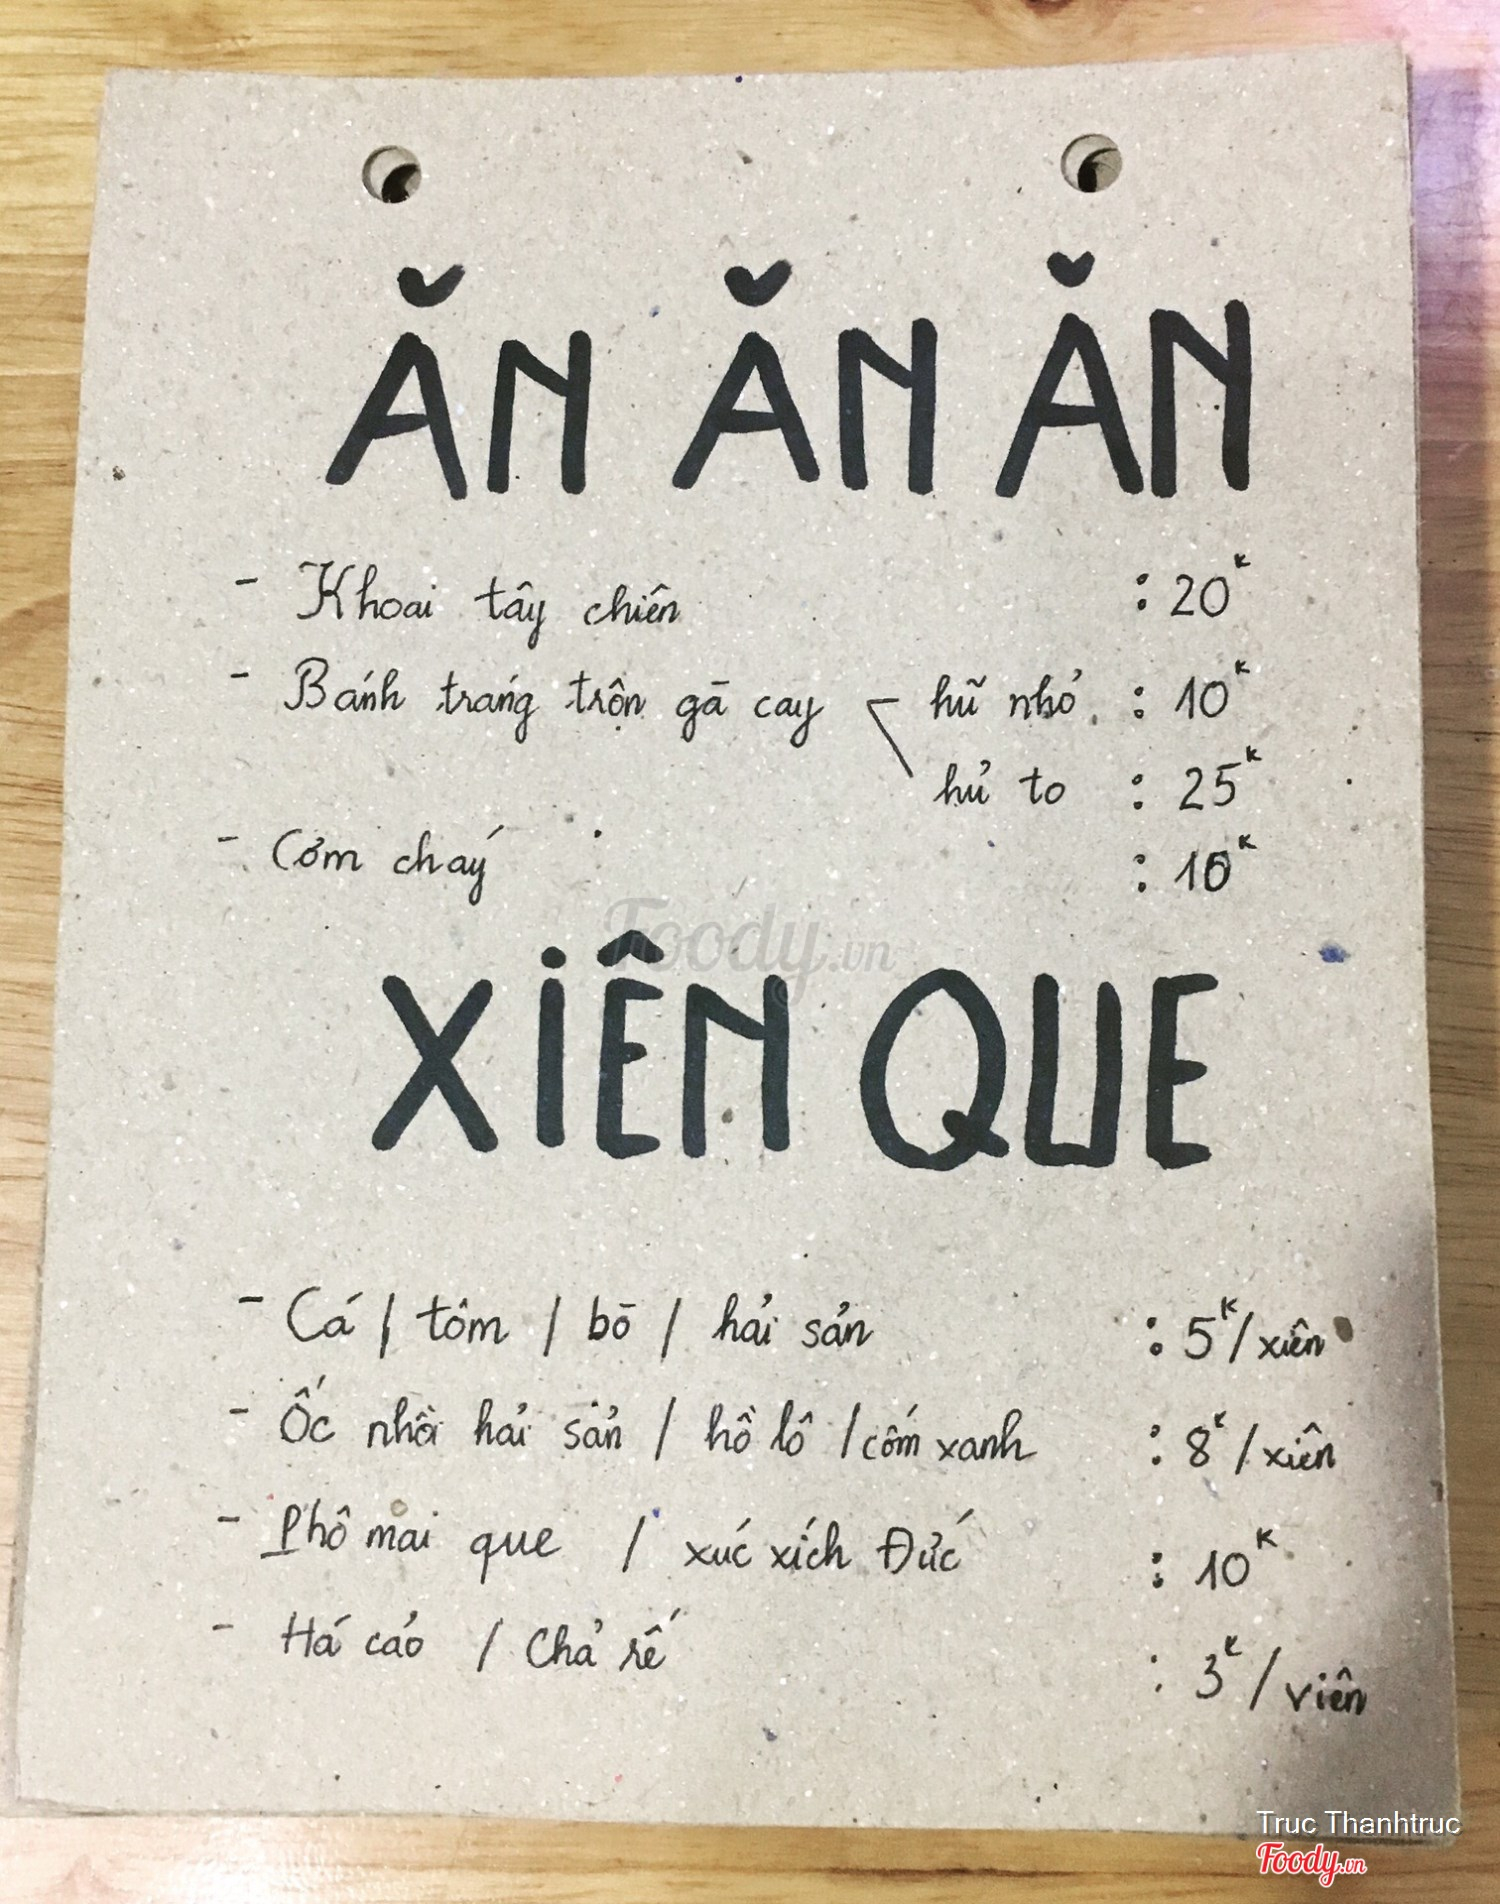 ĂN ĂN ĂN
- Khoai tây chiên : 20k
- Bánh tráng trộn gà cay hũ nhỏ : 10k
hủ to : 25k
- Cơm cháy : 10k
Foody.vn
XIÊN QUE
- Cá / tôm / bò / hải sản : 5k/xiên
- Ốc nhồi hải sản / hồ lô / cốm xanh : 8k/xiên
- Phô mai que / xúc xích Đức : 10k
- Há cảo / Chả rế : 3k/viên
Truc Thanhtruc
Foody.vn